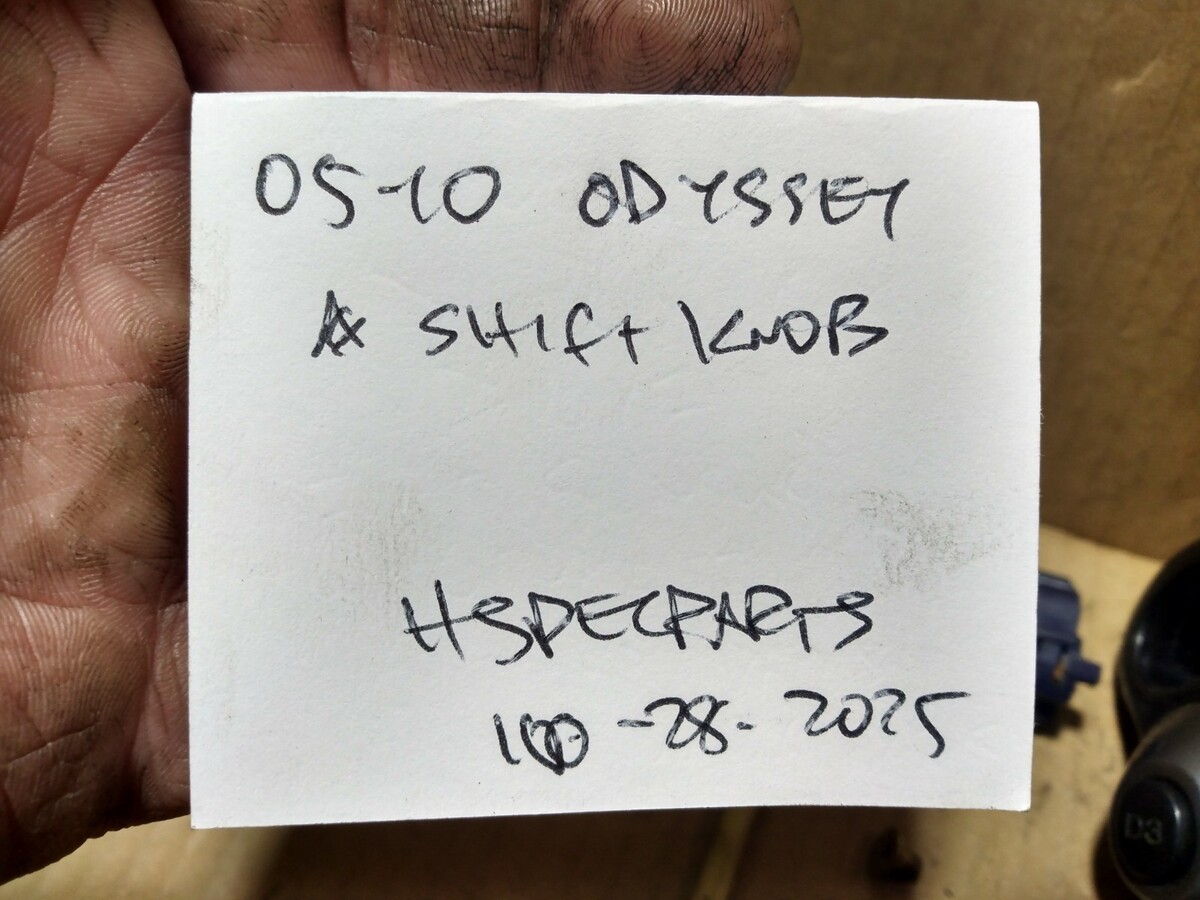 05-10 ODYSSEY
SHIFT KNOB
HSPECPARTS
10-28-2025
D3